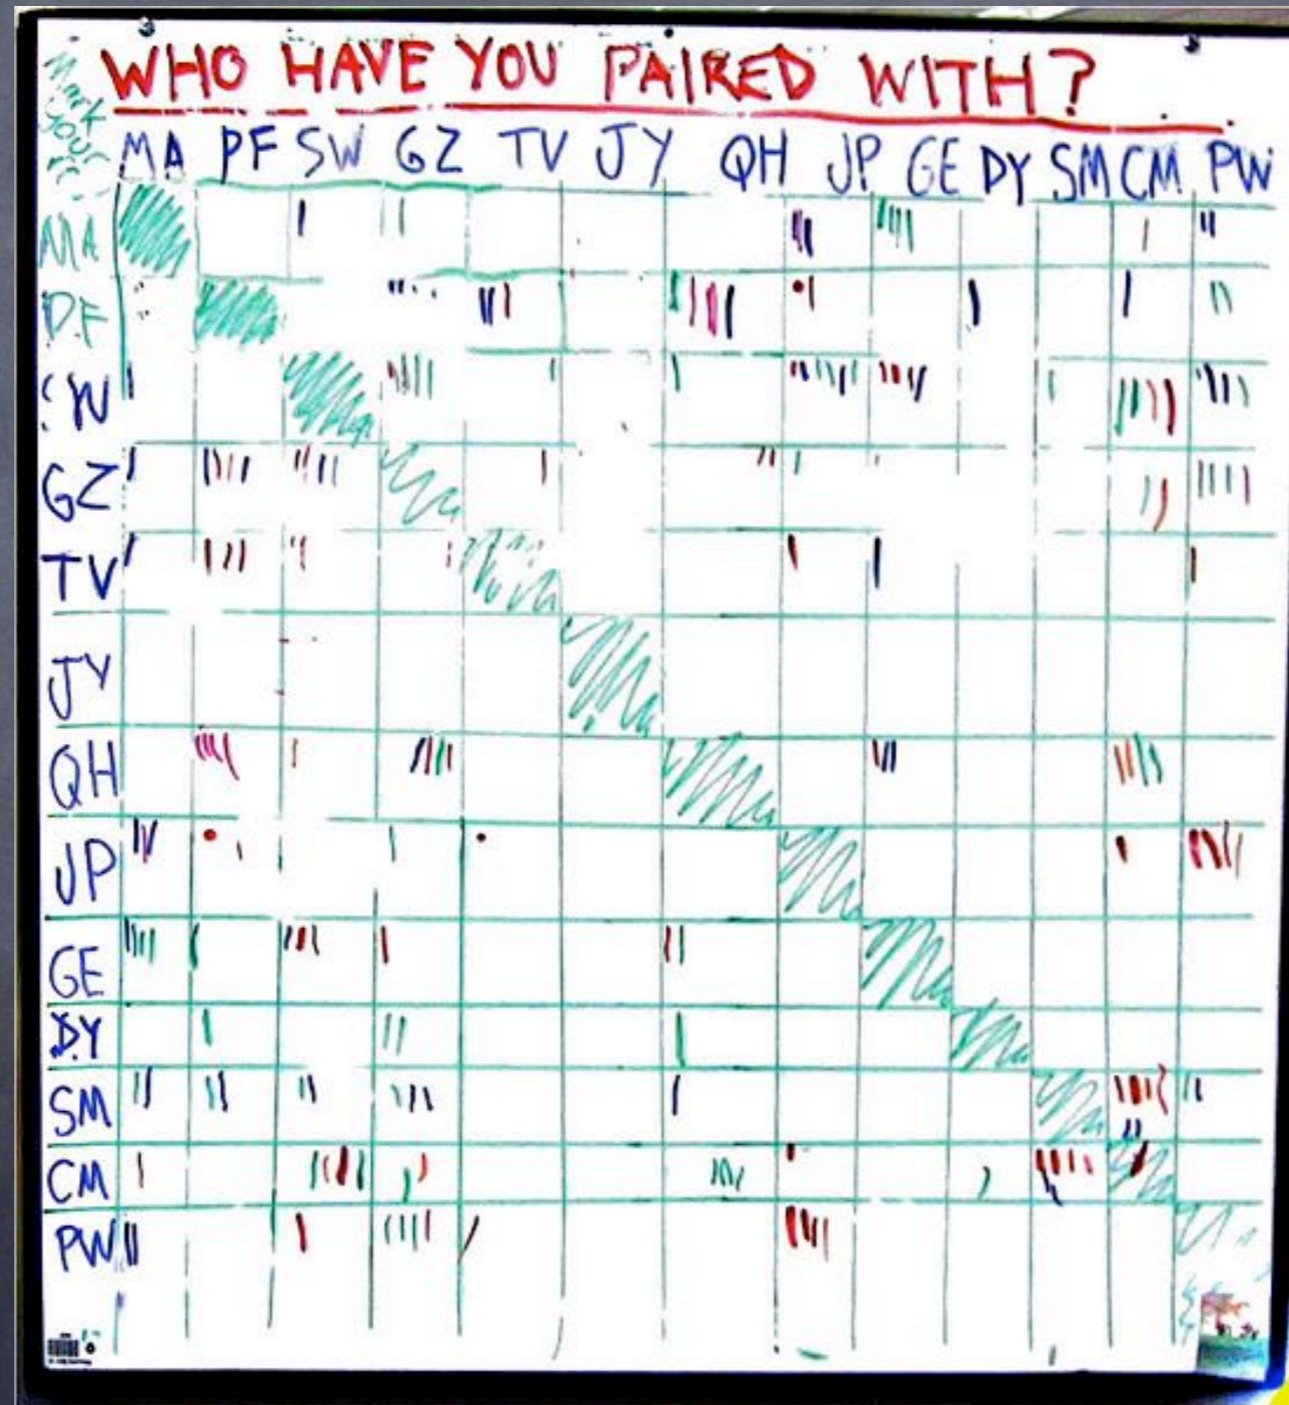 WHO HAVE YOU PAIRED WITH?
Mark
your
MA PF SW GZ TV JY QH JP GE DY SM CM PW
MA
PF
SW
GZ
TV
JY
QH
JP
GE
DY
SM
CM
PW